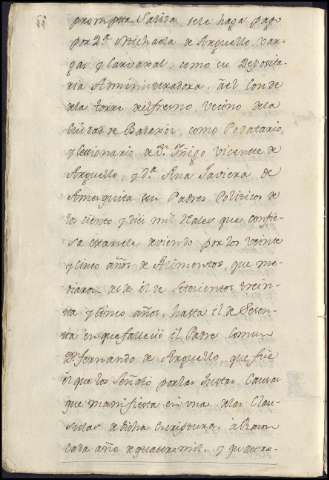 prompta Salida se le haga pago
por D.ª Michaela de Arguello, Var-
gas y Carvaxal, como su Deposita-
ria Administradora, al Conde
de la torre del fresno Vecino de la
Ciudad de Badaxoz, como Podatario,
y Cessionario de D.n Iñigo Vicente de
Arguello, y D.ª Ana Javiera de
Amezquita sus Padres Politicos de
los ciento y diez mil Reales que confie-
sa estarsele deviendo por los veinte
y cinco años de Alimentos, que me-
diaron desde el de Setecientos treinta
y cinco años, hasta el de Sesen-
ta en que falleció el Padre Comun
D.n Fernando de Arguello, que fue
el que los Señaló por las Justas Causas
que manifiesta en una de las Clau-
sulas de dicha Escriptura, a Razon
cada año de quatro mil, y quatro-